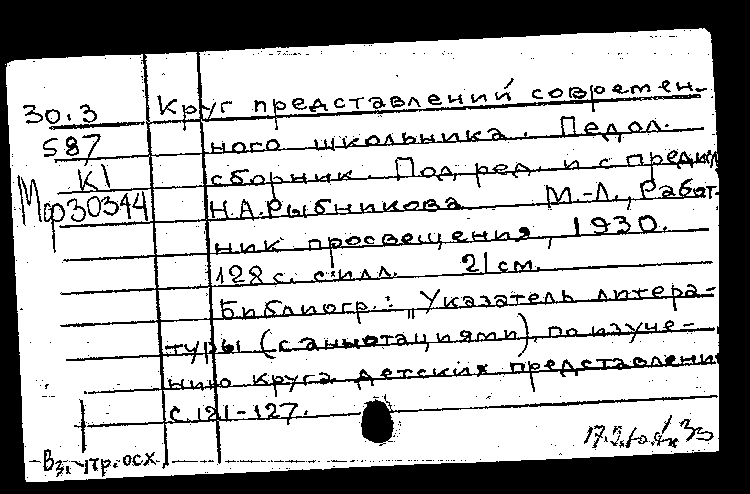 30.3 Круг представлений современ-
587 ного школьника. Педол.
К1 сборник. Под ред. и с предисл
Мф30344 Н.А.Рыбникова М.-Л., Работ-
ник просвещения, 1930.
128 с. с илл. 21 см.
Библиогр.: "Указатель литера-
туры (с аннотациями) по изуче-
нию круга детских представлени
с 121-127.
Вз. утр. осх